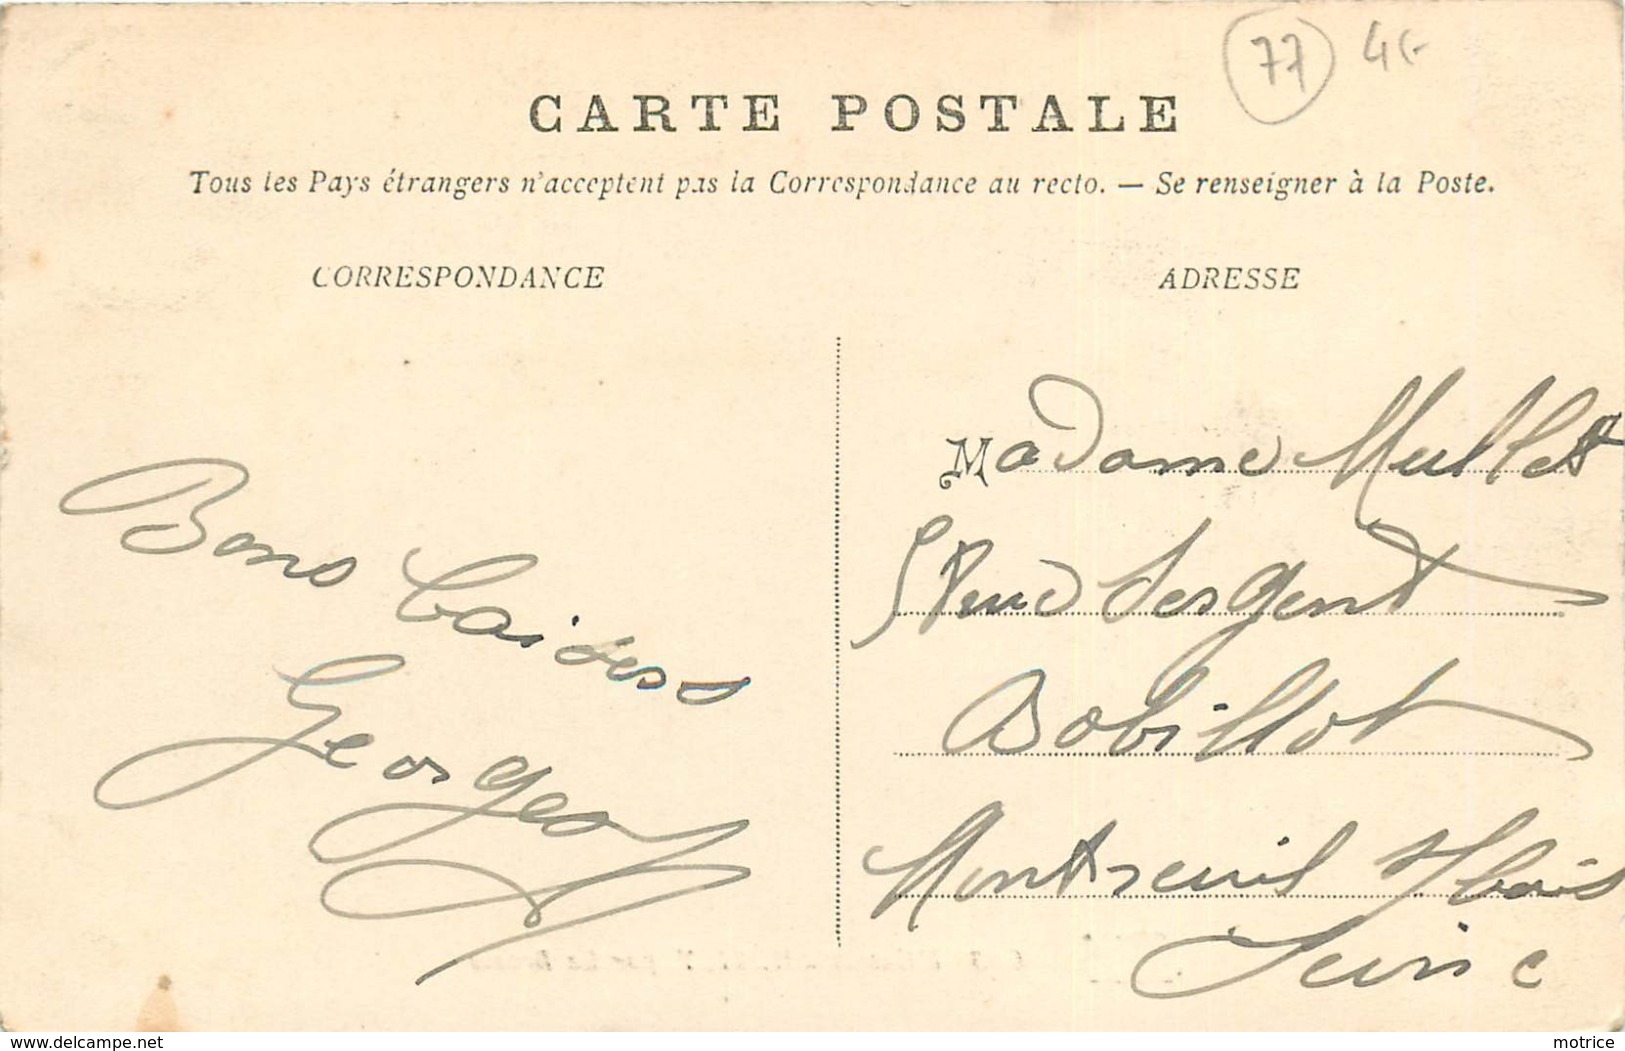 77 4€
CARTE POSTALE
Tous les Pays étrangers n'acceptent pas la Correspondance au recto. — Se renseigner à la Poste.
CORRESPONDANCE
ADRESSE
Bons baisers
Georges
Madame Mullet
5 Rue Sergent
Bobillot
Montreuil s/ bois
Seine
www.delcampe.net
motrice